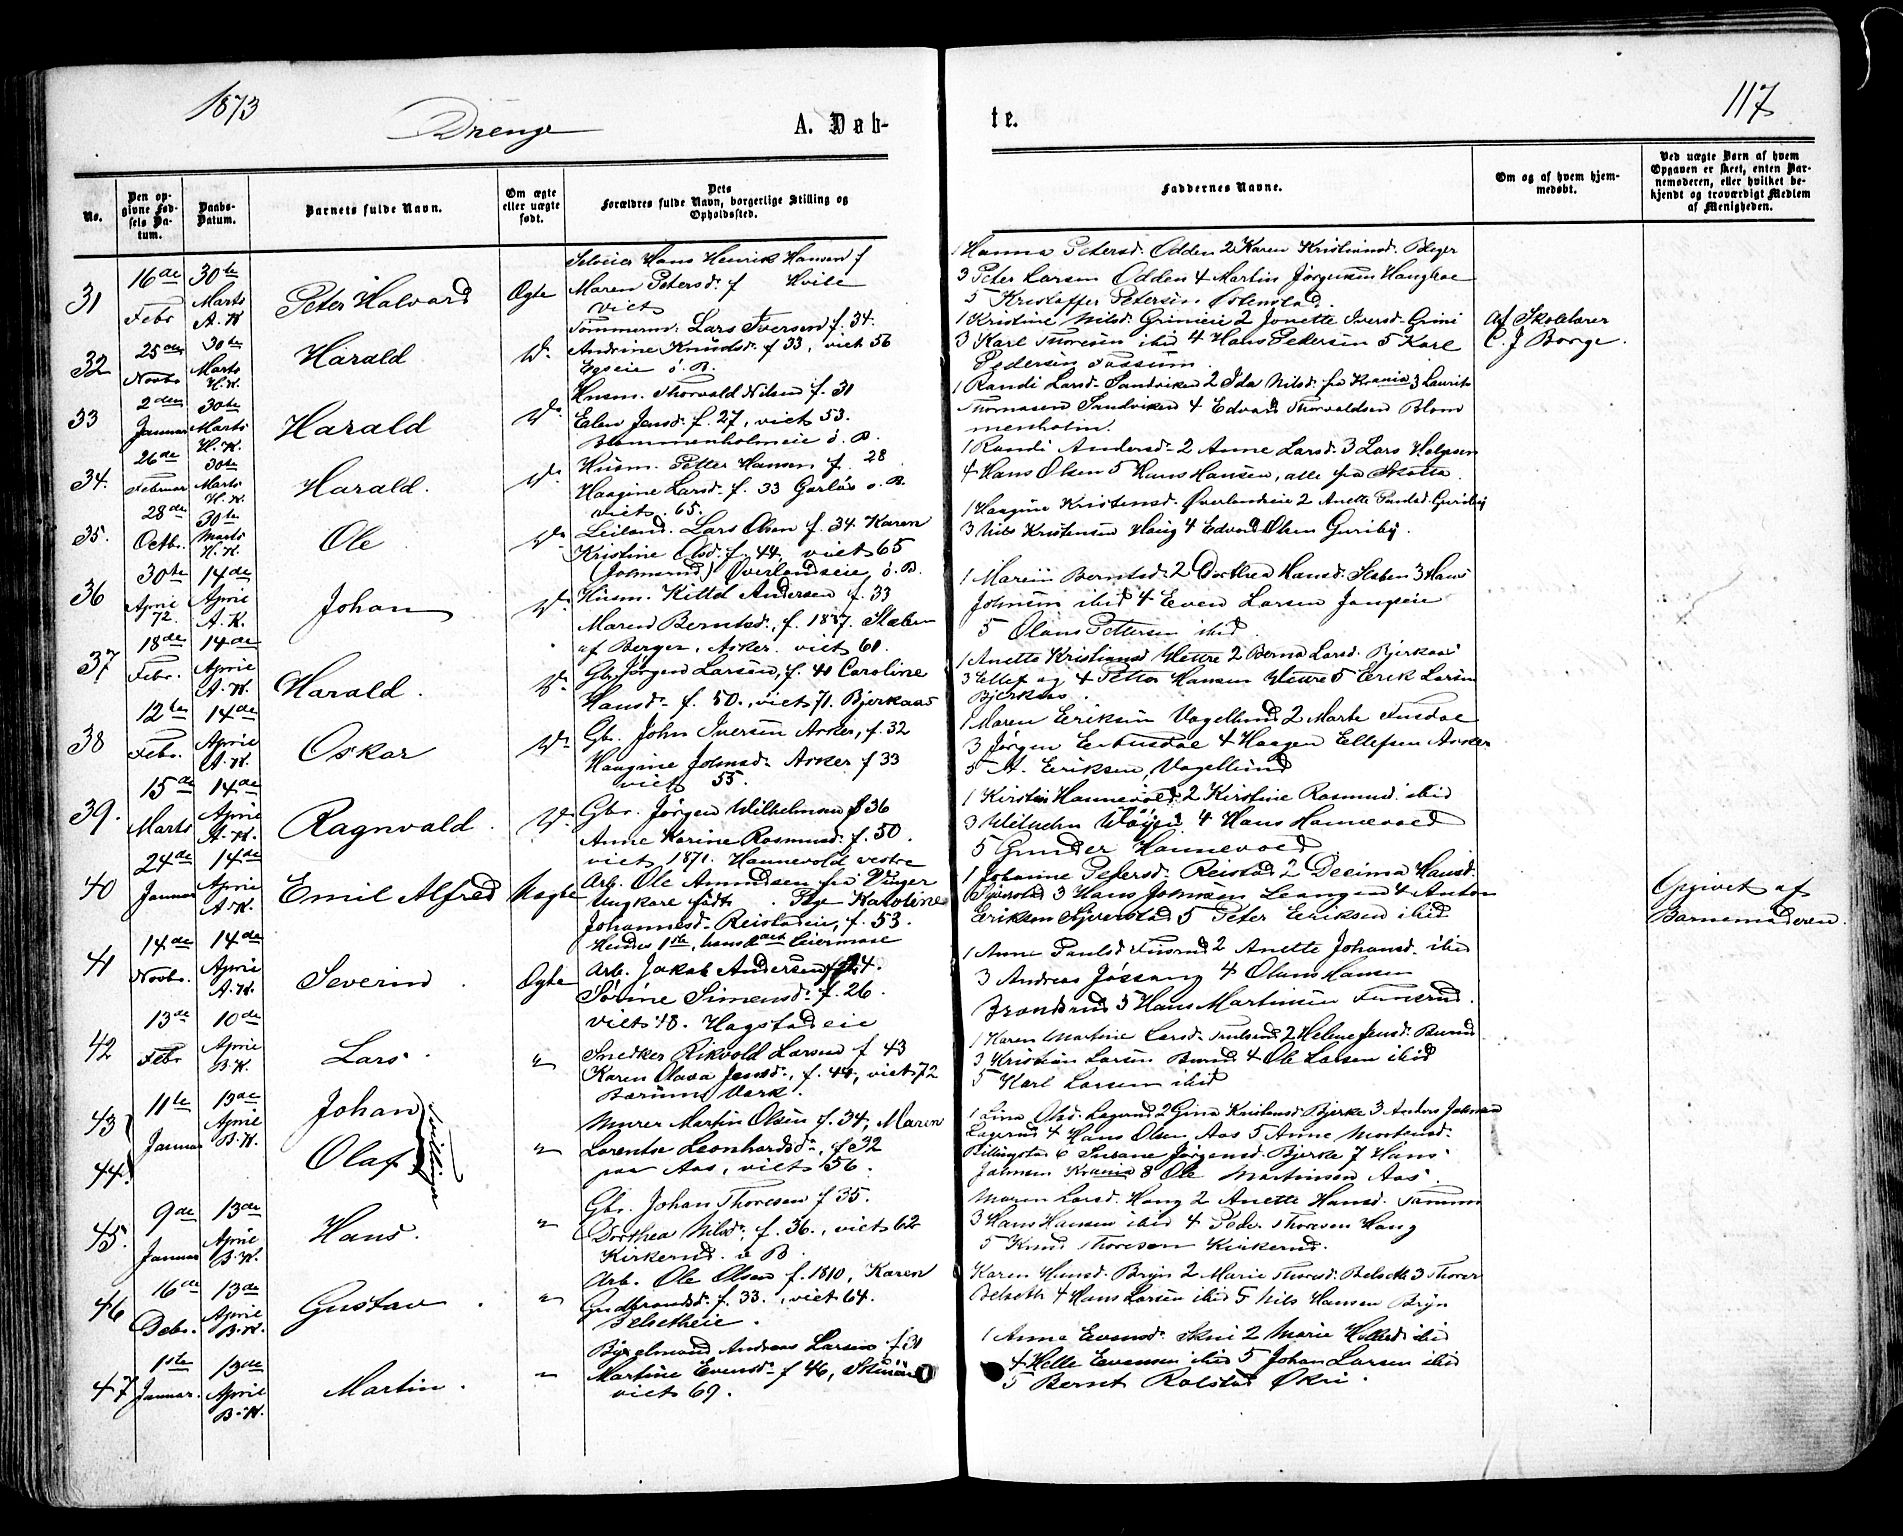 1873
Drenge
A. Døb-
te.
117
No.
Den op-
givne Fød-
sels Da-
tum.
Daabs-
Datum.
Barnets fulde Navn.
Om ægte
eller uægte
født.
Dets
Forældres fulde Navn, borgerlige Stilling og
Opholdssted.
Faddernes Navne.
Om og af hvem hjem-
medøbt.
Ved uægte Børn af hvem
Opgaven er skeet, enten Bar-
nemoderen, eller hvilket be-
kjendt og troværdigt Medlem
af Menigheden.
31
16de Febr
30te Marts A. K
Peter Halvard
Ægte
Hans Henrik Hansen f
Maren Petersd. f Hvile
viet
1 Hanna Petersd. Odden 2 Karen Kristiansd.
3 Peter Larsen Odden 4 Martin Jørgensen
5 Kristoffer Petersen
32
25de Novbr
30te Marts H.K.
Harald
Do
Tømmerm. Lars Iversen f. 34.
Andrine Knudsd. f 33, viet 56
Egseie ø. B.
1 Kristine Nilsd. Grinieie 2 Jonette Iversd. Grini
3 Karl Thoresen ibid 4 Hans Pedersen 5 Karl
Pedersen Fossum
Af Skolelærer
C. J Borge.
33
2den Januar
30te Marts H.K.
Harald
Do
Husm. Thorvald Nilsen f. 31
Elen Jensd. f. 27, viet 53.
Blommenholmeie ø. B.
1 Randi Larsd. Sandviken 2 Ida Nilsd. fra Krania 3 Laurits
Thomasen Sandviken 4 Edvard Thorvaldsen Blom
menholm.
34.
26de Februar
30te Marts H.K.
Harald.
Do
Husm. Petter Hansen f. 28
Haagine Larsd. f. 33 Garløs ø. B.
viet. 65.
1 Randi Andersd. 2 Anne Larsd. 3 Lars Holgesen
4 Hans Olsen 5 Hans Hansen, alle fra Skotta.
35.
28de Octbr.
30te Marts H.K.
Ole
Do
Leiland. Lars Olsen f. 34. Karen
Kristine Olsd. f. 44. viet 65
Øverlandseie, ø. B.
1 Haagine Kristensd. Øverlandeie 2 Anette
3 Nils Kristensen Haug 4 Edvard Olsen
36
30te April 72.
14de April A. K.
Johan
Do
Husm. Kittel Andersen f. 33
Maren Berntsd., f. 1837. Staben
af Berger, Asker. viet 61.
1 Maren Berntsd. 2 Dorthea Hansd. Staben 3 Hans
Johnsen ibid 4 Even Larsen
5 Olaus Pettersen ibid
37
18de Febr.
14de April A.K.
Harald.
Do
Gbr. Jørgen Larsen, f. 41 Caroline
Hansd. f. 50., viet 71. Bjerkaas
1 Anette Kristiansd Hettre 2 Berna Larsd. Bjerkaas
3 Ellef og 4 Petter Hansen Hettre 5 Erik Larsen
Bjerkaas.
38
12te Febr.
14de April A.K.
Oskar
Do
Gbr. John Iversen Asker, f. 32
Haagine Johnsd. Asker f 33
viet 55.
1 Maren Eriksen Vogellund 2 Marte Fusdal
3 Jørgen Fusdal 4 Haagen Ellefsen Asker
5 A. Eriksen, Vogellund
39.
15de Marts
14de April A.K.
Ragnvald.
Do
Gbr. Jørgen Wilhelmsen f 36
Anne Karine Rasmusd. f. 50
viet 1871. Hannevold vestre
1 Kirstin Hannevold 2 Kirstine Rasmusd. ibid
3 Wilhelm Wøyen 4 Hans Hannevold
5 Gunder Hannevold
40
24de Januar
14de April A.K.
Emil Alfred
Uægte
Arb. Ole Amundsen fra Vinger
Ungkarl født . Pige Karoline
Johannesd. Reistadeie, f. 53.
Hendes 1ste, hans leiermaal
1 Johanne Petersd. Reistad 2 Decima Hansd.
Gjerstad 3 Hans Johnsen Leangen 4 Anton
Eriksen 5 Peter Eriksen ibid
Opgivet af
Barnemoderen.
41
14de Novbr.
14de April A.K.
Severin.
Ægte
Arb. Jakob Andersen f 24.
Sørine Simensd. f. 26.
viet 48. Hogstadeie
1 Anne Paulsd 2 Anette Johansd. ibid
3 Andreas Jøssang 4 Olaus Hansen
5 Hans Martinsen
42
13de Febr
10de April B.K.
Lars.
"
Snedker Rikvold Larsen f 43
Karen Olava Jensd., f. 44, viet 72
Bærums Værk.
1 Karen Martine Larsd. 2 Helene Jensd. Burud
3 Kristian Larsen Burud 4 Ole Larsen ibid
5 Karl Larsen ibid
43
44.
11te Januar
13de April B.K.
Johan
Olaf
Tvillinger
"
Murer Martin Olsen f. 34, Maren
Lorentse Leonhardsd., f 32
paa Aas, viet 56.
1 Lina Olsd. Lagerud 2 Gina Kristensd. Bjerke 3 Anders Johnsen
Lagerud 4 Hans Olsen Aas 5 Anne Mortensd.
Billingstad 6 Susane Jørgensd. Bjerke 7 Hans
Johnsen Krania 8 Ole Martinsen Aas.
45.
9de Januar
13de April B.K.
Hans.
"
Gbr. Johan Thoresen f 35.
Dorthea Nilsd. f. 36., viet 62
Kirkerud. ø B.
Maren Larsd. Haug 2 Anette Hansd.
3 Hans Hansen ibid 4 Peder Thoresen Haug
5 Knud Thoresen Kirkerud.
46
16de Debr.
13de April B.K.
Gustav.
"
Arb. Ole Olsen f. 1810, Karen
Gudbrandsd. f. 33., viet 64.
Belsetheie.
Karen Hansd. Bryn 2 Marie Thoresd. Belseth 3 Thorer
Belseth 4 Hans Larsen ibid 5 Nils Hansen Bryn
47
1ste Januar.
13de April B.K.
Martin.
"
Bygselmand Andreas Larsen f 31
Martine Evensd. f 46,
viet 69.
1 Anne Evensd. Skui 2 Marie ibid
4 Helle Evensen ibid 5 Johan Larsen ibid
5 Bernt Rolstad Økri.